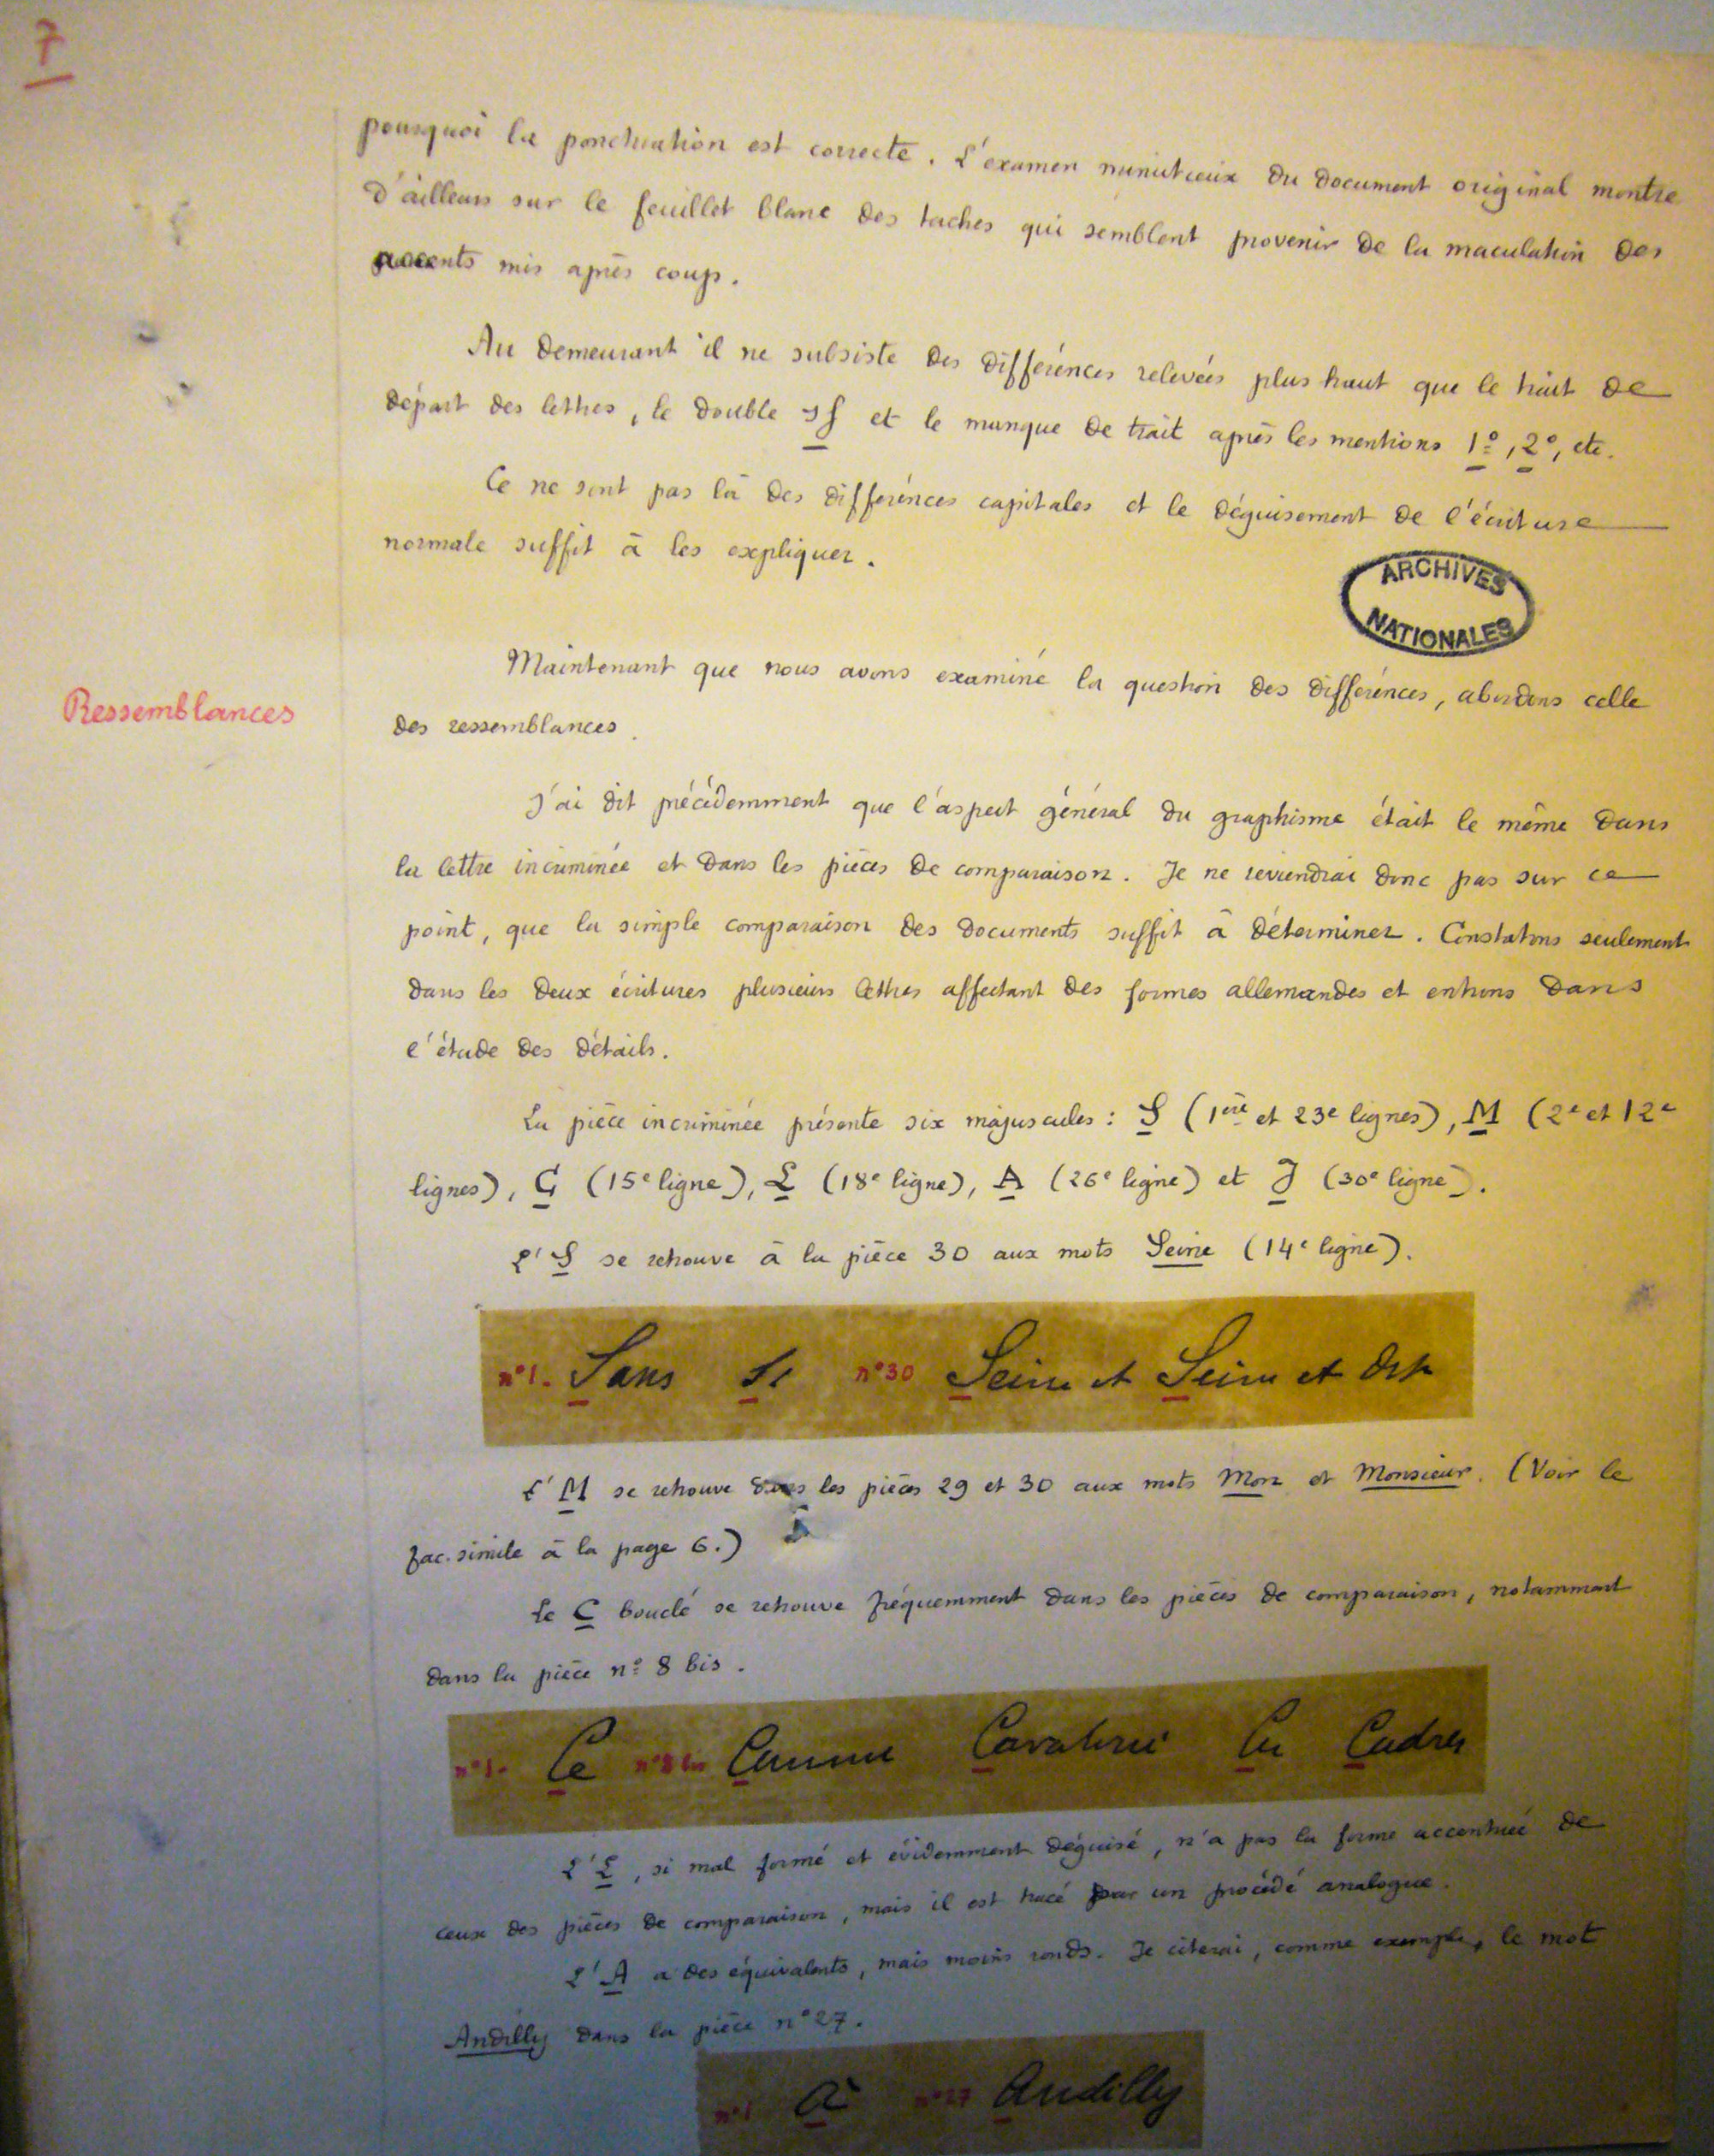 7
pourquoi la ponctuation est correcte. L'examen minutieux du document original montre
d'ailleurs sur le feuillet blanc des taches qui semblent provenir de la maculation des
accents mis après coup.
Au demeurant il ne subsiste des différences relevées plus haut que le trait de
départ des lettres, le double sf et le manque de trait après les mentions 1º, 2º, etc.
Ce ne sont pas là des différences capitales et le déguisement de l'écriture
normale suffit à les expliquer.
ARCHIVES
NATIONALES
Maintenant que nous avons examiné la question des différences, abordons celle
Ressemblances
des ressemblances.
J'ai dit précédemment que l'aspect général du graphisme était le même dans
la lettre incriminée et dans les pièces de comparaison. Je ne reviendrai donc pas sur ce
point, que la simple comparaison des documents suffit à déterminer. Constatons seulement
dans les deux écritures plusieurs lettres affectant des formes allemandes et entrons dans
l'étude des détails.
La pièce incriminée présente six majuscules : S (1ère et 23e lignes), M (2e et 12e
lignes), C (15e ligne), E (18e ligne), A (26e ligne) et J (30e ligne).
L'S se retrouve à la pièce 30 aux mots Seine (14e ligne).
nº1. Sans Si nº30 Seine et Seine et Oise
L'M se retrouve dans les pièces 29 et 30 aux mots Mon et Monsieur. (Voir le
fac.simile à la page 6.)
Le C bouclé se retrouve fréquemment dans les pièces de comparaison, notamment
dans la pièce nº 8 bis.
nº1. Ce nº8 bis Comme Cavalerie Ces Cadres
L'E, si mal formé et évidemment déguisé, n'a pas la forme accentuée de
ceux des pièces de comparaison, mais il est tracé par un procédé analogue.
L'A a des équivalents, mais moins ronds. Je citerai, comme exemple, le mot
Andilly dans la pièce nº27.
nº1 A nº27 Andilly